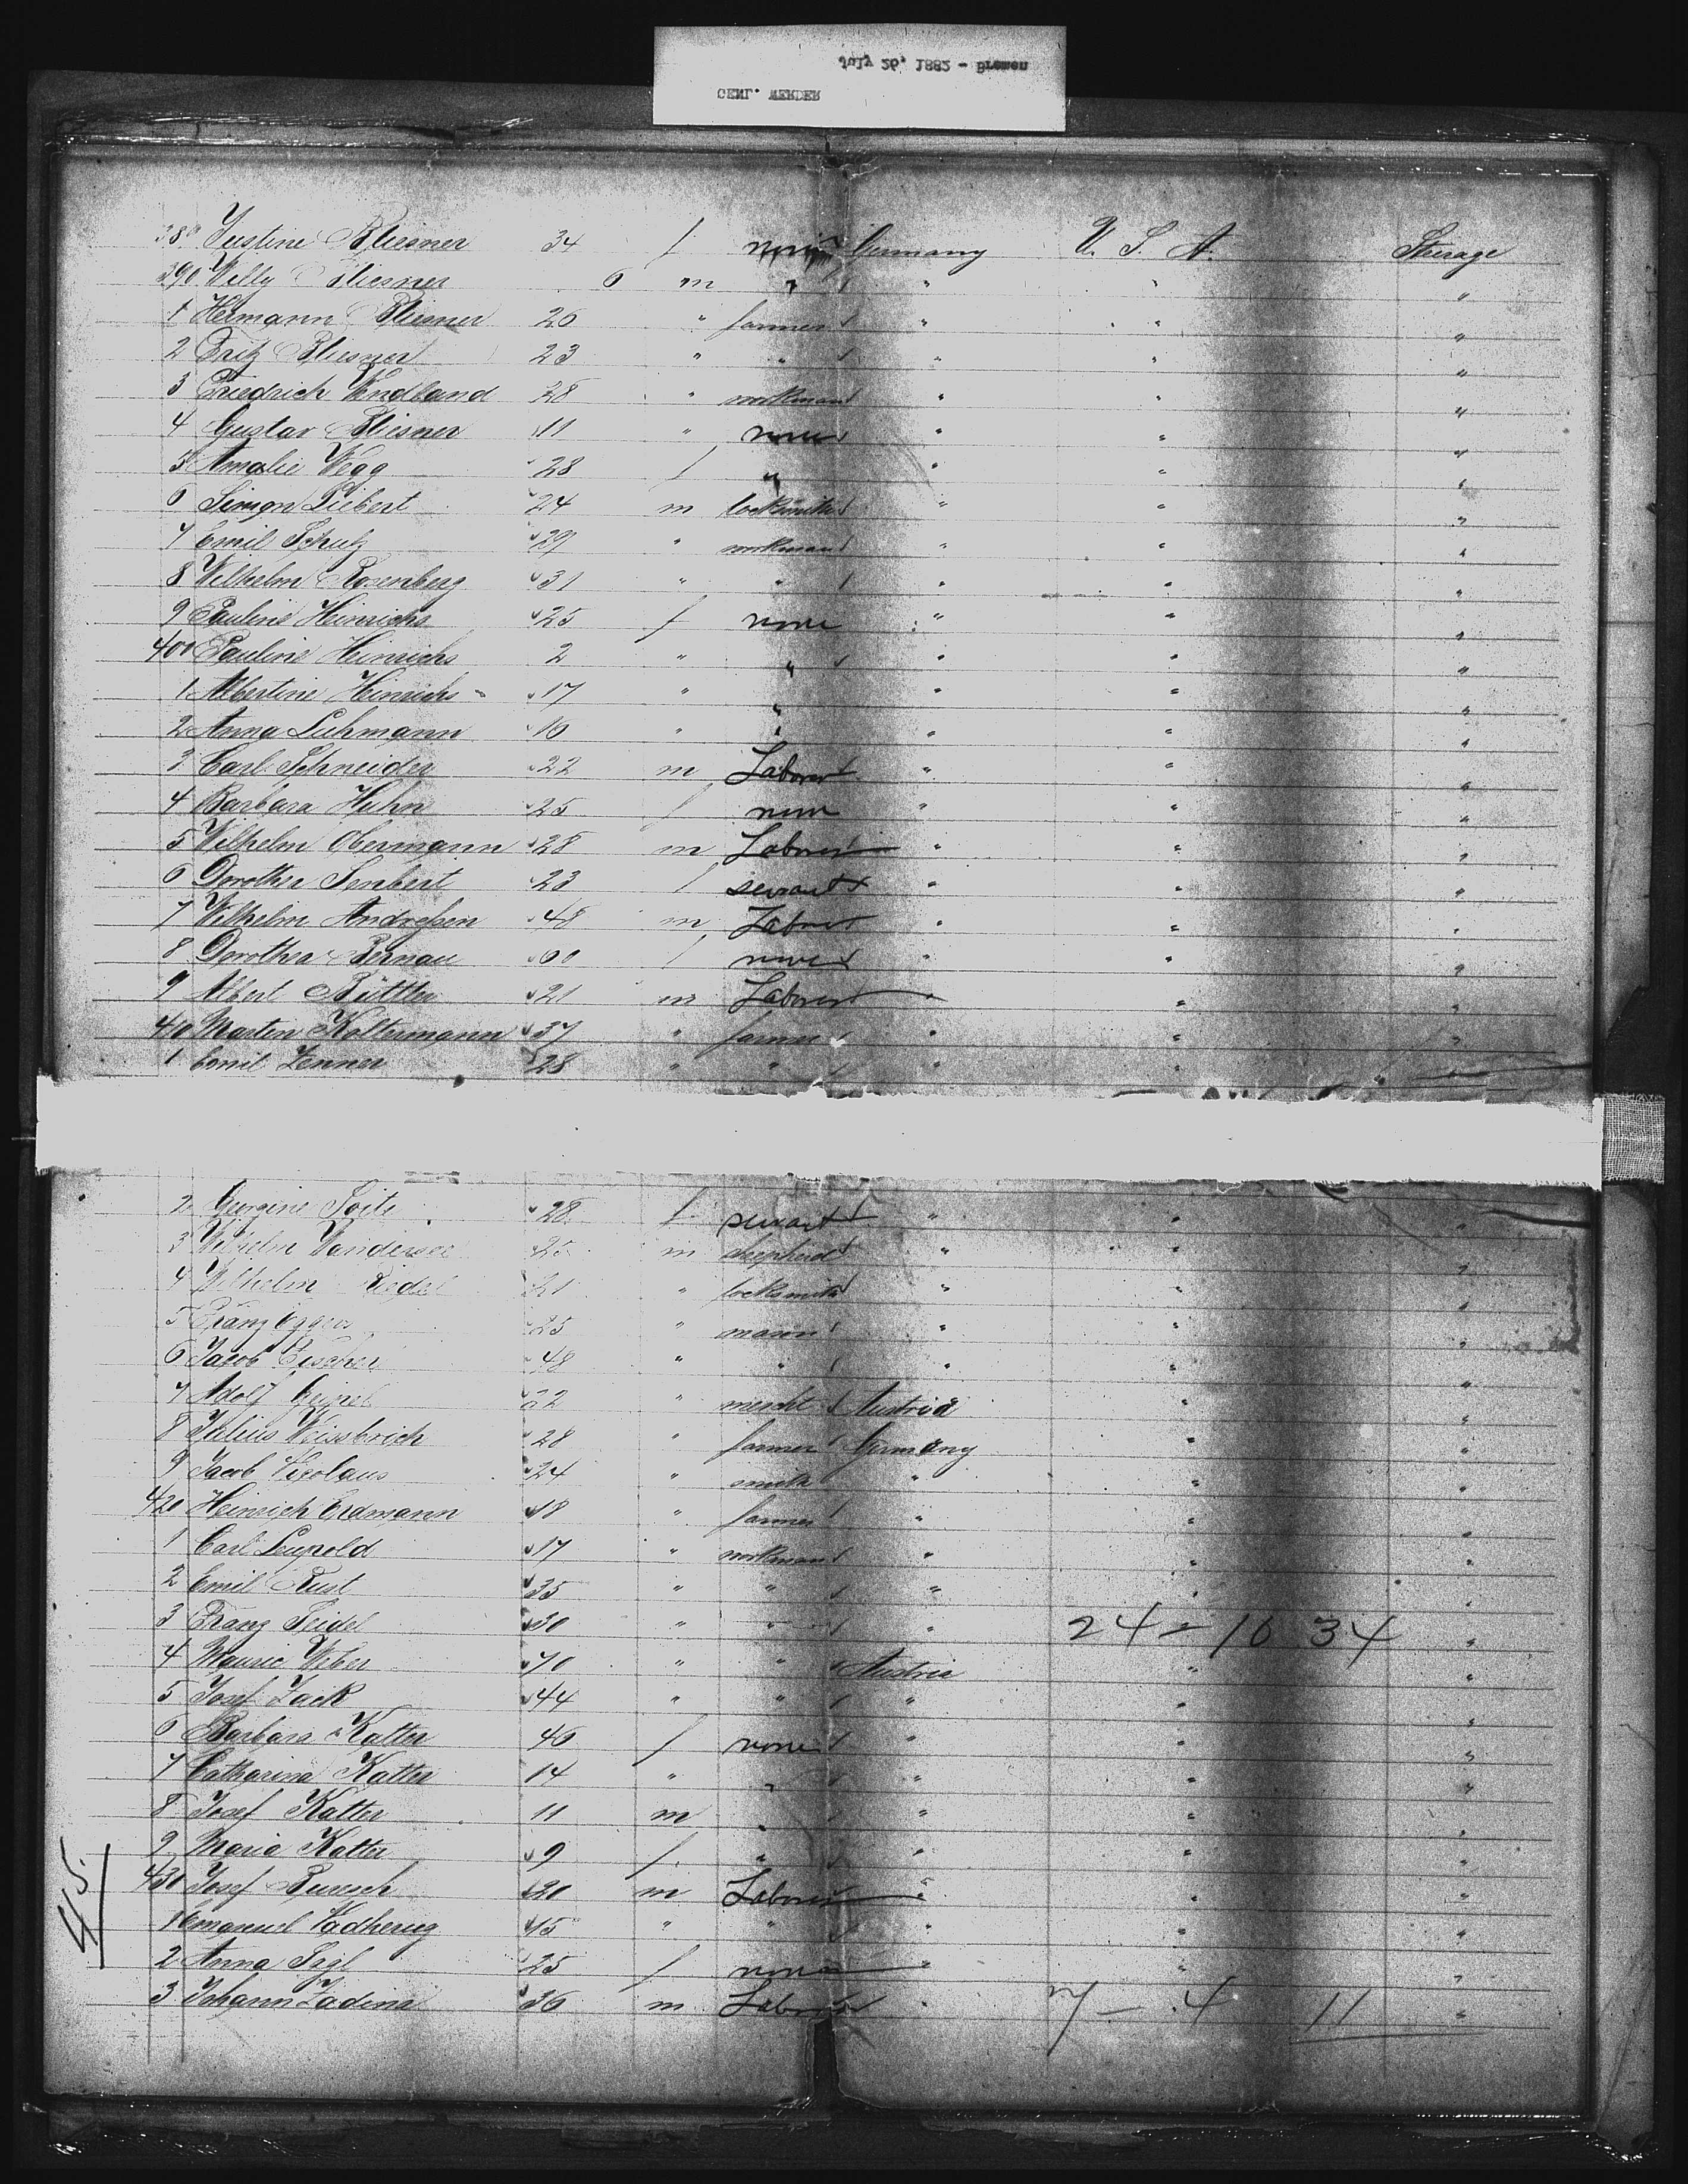 July 26, 1882 - Bremen
GENL. WERDER
Justine Bliesner 34 f none Germany U. S. A. Steerage
390 Willy Bliesner 6 m " " " "
1 Hermann Bliesner 26 " farmer " " "
2 Fritz Bliesner 23 " " " " "
3 Friedrich Wendland 28 " workman " " "
4 Gustav Bliesner 11 " none " " "
5 Amalie 28 f " " " "
6 Simon Siebert 24 m locksmith " " "
7 Emil Schulz 29 " workman " " "
8 Wilhelm Rosenberg 31 " " " " "
9 Pauline Heinrichs 25 f none " " "
400 Pauline Heinrichs 2 " " " " "
1 Albertine Heinrichs 17 " " " "
2 Anna Luhmann 16 " " " " "
3 Carl Schneider 22 m Laborer " " "
4 Barbara Hahn 25 f none " " "
5 Wilhelm Obermann 28 m Laborer " " "
6 Dorothea 23 f servant " " "
7 Wilhelm Andreßen 48 m Laborer " " "
8 Dorothea Bernau 60 f none " " "
9 Albert Büttler 21 m Laborer " " "
410 Martin Koltermann 37 " farmer " " "
1 Emil Zenner 28 " " " "
2 Georgine 28 f servant " " "
3 Wilhelm Wandersee 25 m shepherd " " "
4 Wilhelm 21 " locksmith " " "
5 Franz Eggers 25 " mason " " "
6 Jacob Fischer 48 " " " " "
7 Adolf 22 " mercht Austria " "
8 Julius Weissbrich 28 " farmer Germany " "
9 Jacob Nicolaus 24 " smith " " "
420 Heinrich Erdmann 18 " farmer " " "
1 Carl Leupold 17 " workman " " "
2 Emil Rust 35 " " " " "
3 Franz Seidel 30 " " " 24 - 10 34 "
4 Weber 70 " " Austria " "
5 Josef Zack 44 " " " " "
6 Barbara Katter 46 f none " " "
7 Catharina Katter 14 " " " " "
8 Josef Katter 11 m " " " "
9 Maria Katter 9 f " " "
430 Josef Buresch 20 m Laborer " " "
1 Emanuel 45 " " " " "
2 Anna 25 f none " " "
3 Johann Zadena 36 m Laborer " 7 - 4 11 "
45.